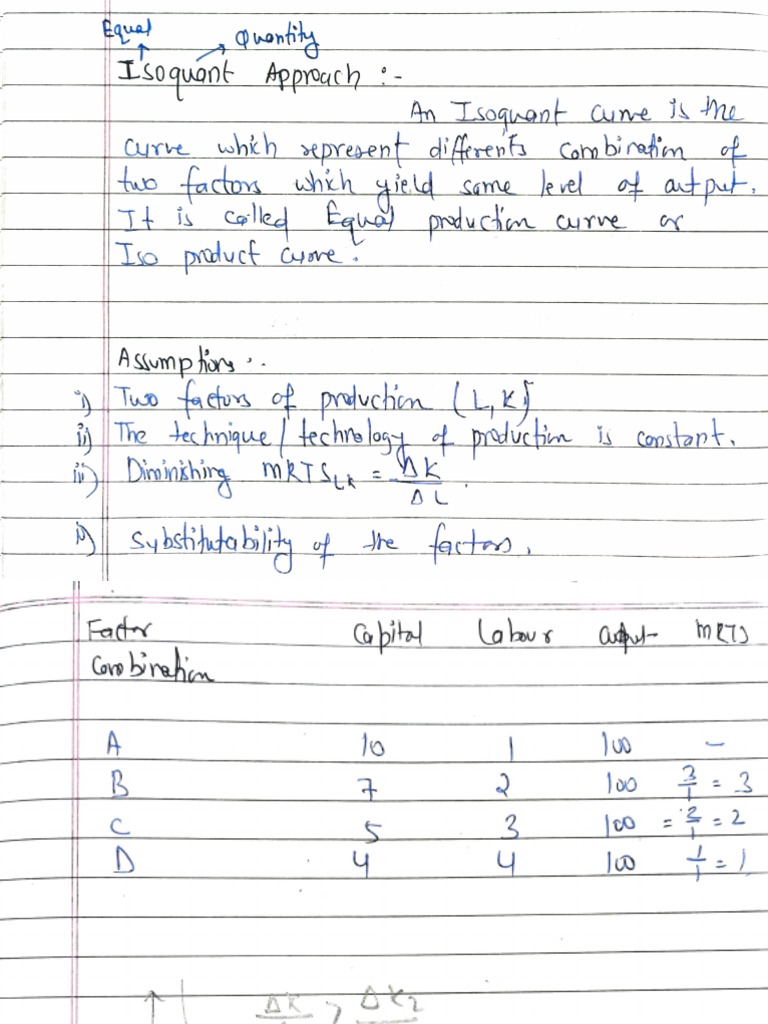 Equal
Quantity
Isoquant Approach :-
An Isoquant curve is the
curve which represent differents combination of
two factors which yield same level of output.
It is called Equal production curve or
Iso product curve.
Assumptions :.
i) Two factors of production (L, K)
ii) The technique/technology of production is constant.
iii) Diminishing MRTS_LK = ΔK/ΔL .
iv) Substitutability of the factors.
Factor Capital Labour output MRTS
Combination
A 10 1 100 –
B 7 2 100 3/1 = 3
C 5 3 100 = 2/1 = 2
D 4 4 100 1/1 = 1
ΔK > ΔK2